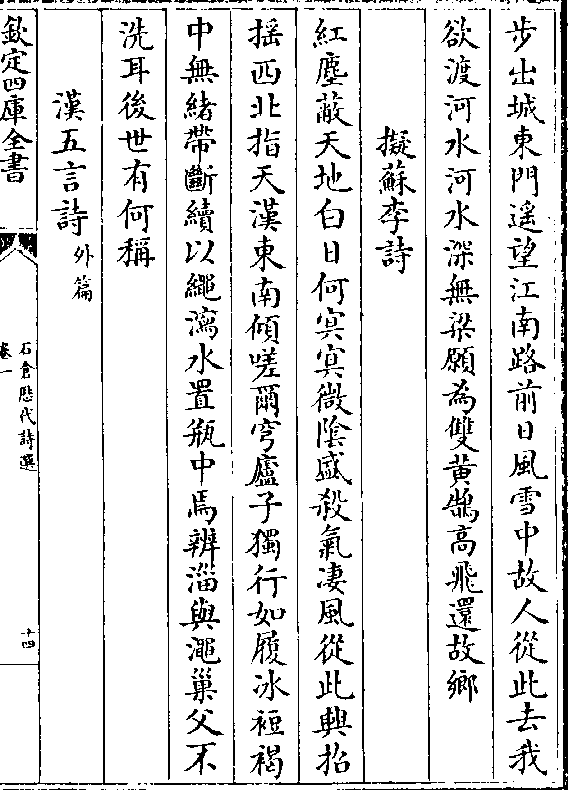 步出城東門遥望江南路前日風雪中故人從此去我
欲渡河水河水深無梁願為雙黄鵠高飛還故鄉
擬蘇李詩
紅塵蔽天地白日何㝠㝠微隂盛殺氣凄風從此興招
揺西北指天漢東南傾嗟爾穹廬子獨行如履冰裋褐
中無緒帶斷續以繩瀉水置瓶中焉辨淄與澠巢父不
洗耳後世有何稱
漢五言詩外篇
欽定四庫全書
石倉歷代詩選
卷一
十四